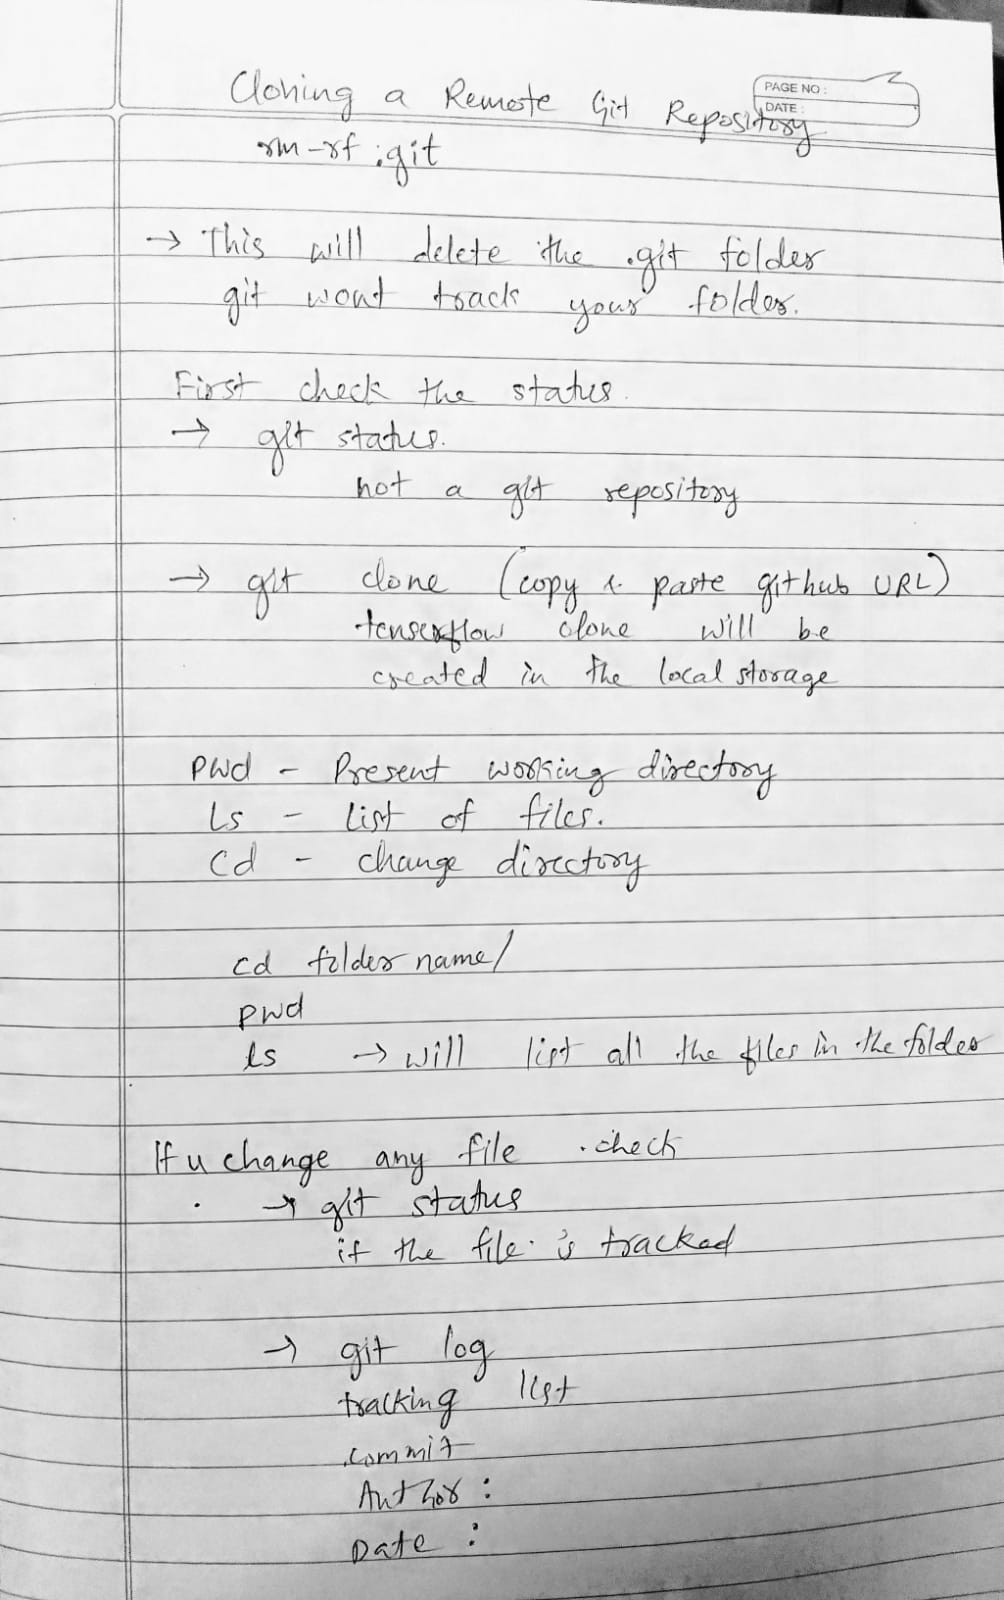 PAGE NO :
DATE :
Cloning a Remote Git Repository
rm-rf .git
→ This will delete the .git folder
git wont track your folder.
First check the status.
→ git status.
not a git repository
→ git clone (copy & paste github URL)
tenserflow clone will be
created in the local storage
pwd - Present working directory
Ls - list of files.
Cd - change directory
cd folder name/
pwd
ls → will list all the files in the folder
If u change any file . check
→ git status
if the file is tracked
→ git log
tracking list
commit
Author :
Date :